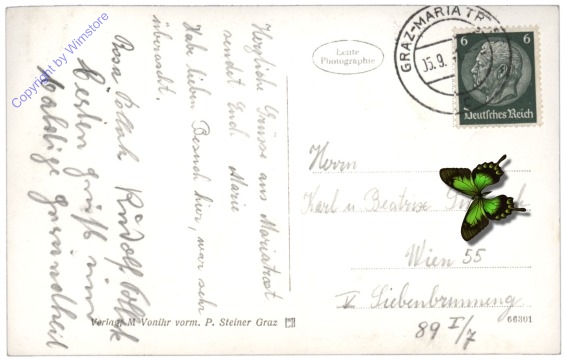 Copyright by Wimstore
Herzliche Grüsse aus Mariatrost
sendet Euch Marie
Habe lieben Besuch hier, war sehr
überrascht.
Rosa Pollak Rudolf Pollak
Besten grüßt um
baldige gesundheit
Echte
Photographie
GRAZ-MARIATR
15.9.
6 6
Deutsches Reich
Herrn
Karl u Beatrise
Wien 55
V Siebenbrunneng
89 I/7
Verlag: M Vonihr vorm. P. Steiner Graz
66301